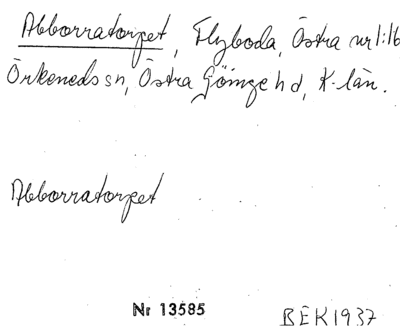 Abborratorpet, Flyboda, Östra nr 1:16
Örkeneds sn, Östra Göinge hd, K-län.
Abborratorpet
Nr 13585
BEK1937